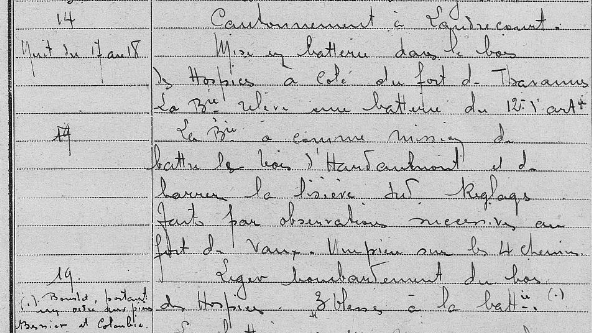 14 Cantonnement à Landrecourt.
Nuit du 17 au 18 Mise en batterie dans le bois
des Hospices à coté du fort de Tavannes
La Bie relève une batterie du 12e d'artie
La Bie a comme mission de
battre les bois d'Hardaumont et de
barrer la lisière sud Réglages
faits par observations successives au
fort de Vaux. sur les 4 chemins.
19. Leger bombardement du bois
des Hospices 3 blessés à la battie. (.)
(.) portant
un
Bessier et Colombie.